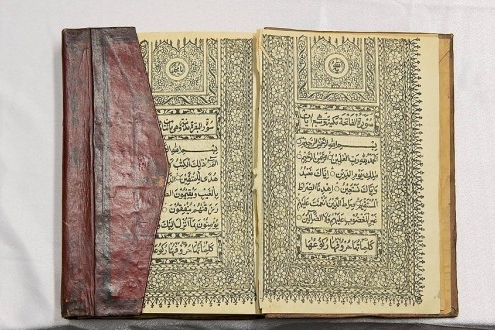 سورة الفاتحة مكية
بسم الله الرحمن الرحيم
الحمد لله رب العلمين الرحمن الرحيم
ملك يوم الدين اياك نعبد
واياك نستعين اهدنا الصراط
المستقيم صراط الذين انعمت عليهم
غير المغضوب عليهم ولا الضالين
كلماتها حروفها ركوعها
سورة البقرة
بسم الله
الم ذلك الكتب
هدى للمتقين
بالغيب ويقيمون
رزقنهم ينفقون
يؤمنون بما انزل اليك
كلماتها حروفها